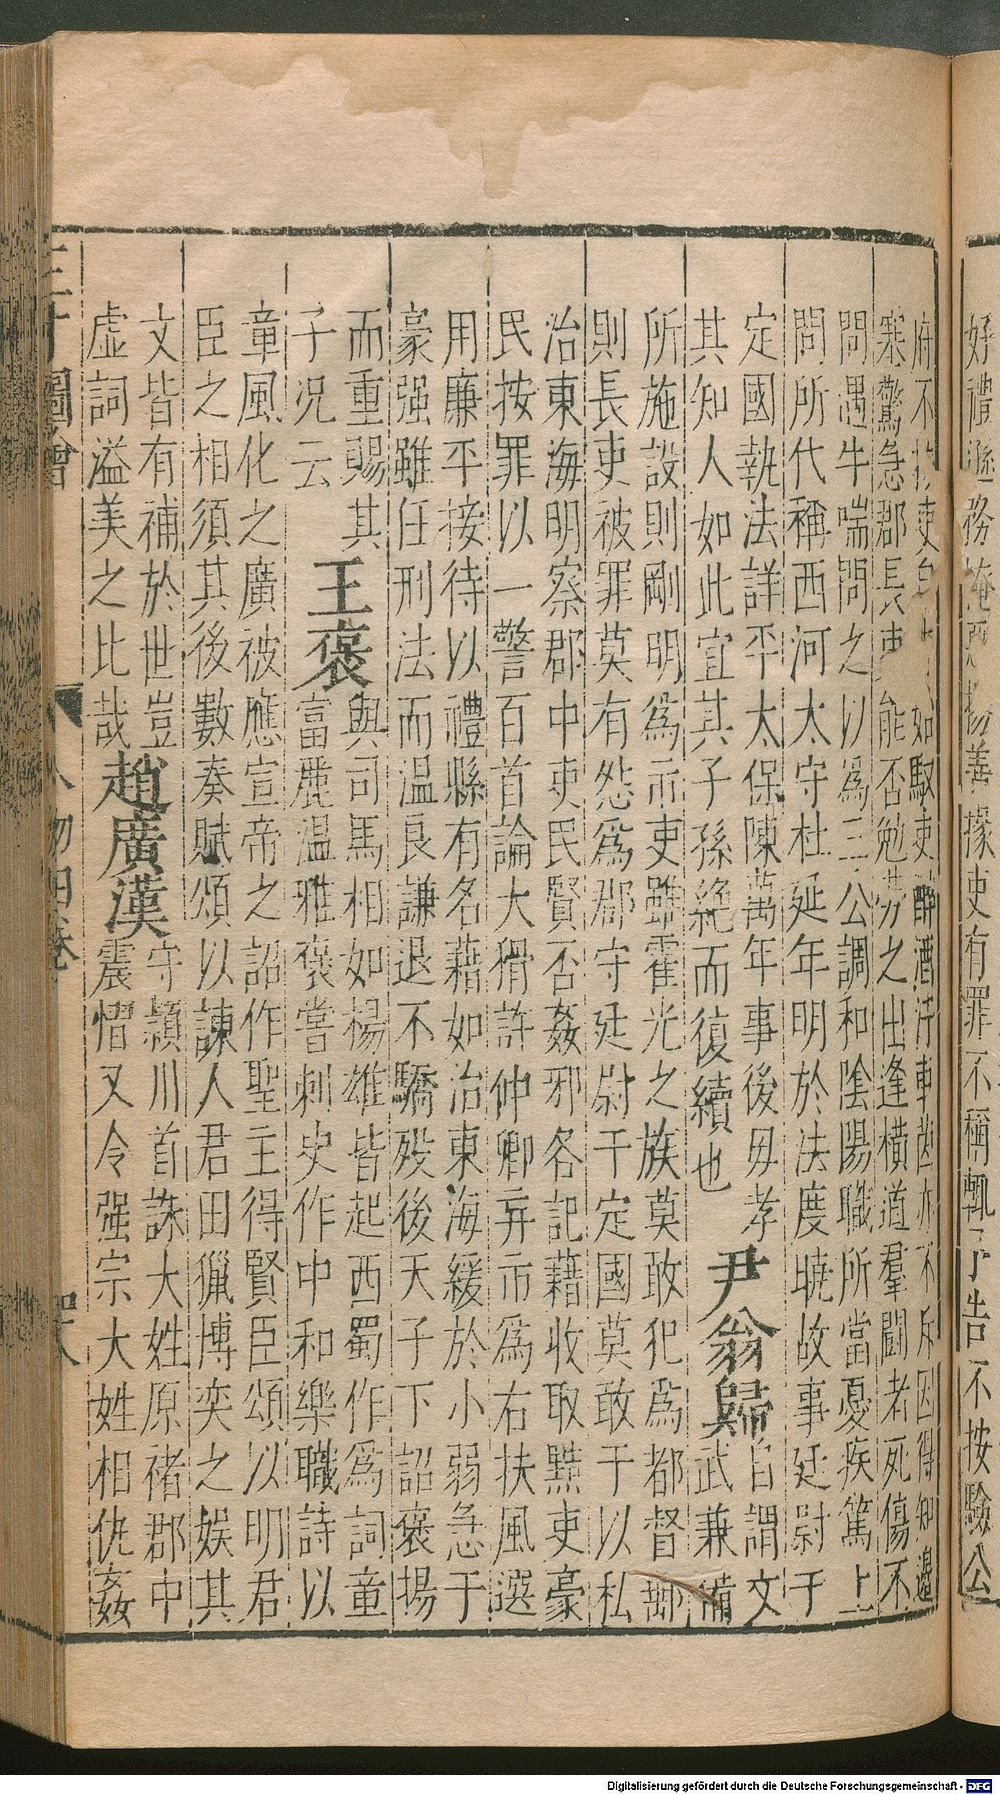 好禮遜務掩惡揚善掾吏有罪不稱輒予告不按驗公
府不按吏自 始馭吏醉酒汙車茵亦不斥因得知邊
塞警急郡長吏能否勉勞之出逢橫道羣鬬者死傷不
問遇牛喘問之以爲三公調和陰陽職所當憂疾篤上
問所代稱西河太守杜延年明於法度曉故事廷尉于
定國執法詳平太保陳萬年事後毋孝
其知人如此宜其子孫絕而復續也
尹翁歸
自謂文
武兼備
所施設則剛明爲市吏雖霍光之族莫敢犯爲都督郵
則長吏被罪莫有怨爲郡守廷尉于定國莫敢干以私
治東海明察郡中吏民賢否姦邪各記藉收取黠吏豪
民按罪以一警百首論大猾許仲卿弃市爲右扶風選
用廉平接待以禮縣有名藉如治東海緩於小弱急于
豪强雖任刑法而温良謙退不驕歿後天子下詔褒揚
而重賜其
子况云
王褒
與司馬相如楊雄皆起西蜀作爲詞童
富麗温雅褒嘗刺史作中和樂職詩以
章風化之廣被應宣帝之詔作聖主得賢臣頌以明君
臣之相須其後數奏賦頌以諫人君田獵博奕之娱其
文皆有補於世豈
虛詞溢美之比哉
趙廣漢
守頴川首誅大姓原禇郡中
震慴又令强宗大姓相仇姦
三才圖會 人物四卷
Digitalisierung gefördert durch die Deutsche Forschungsgemeinschaft - DFG